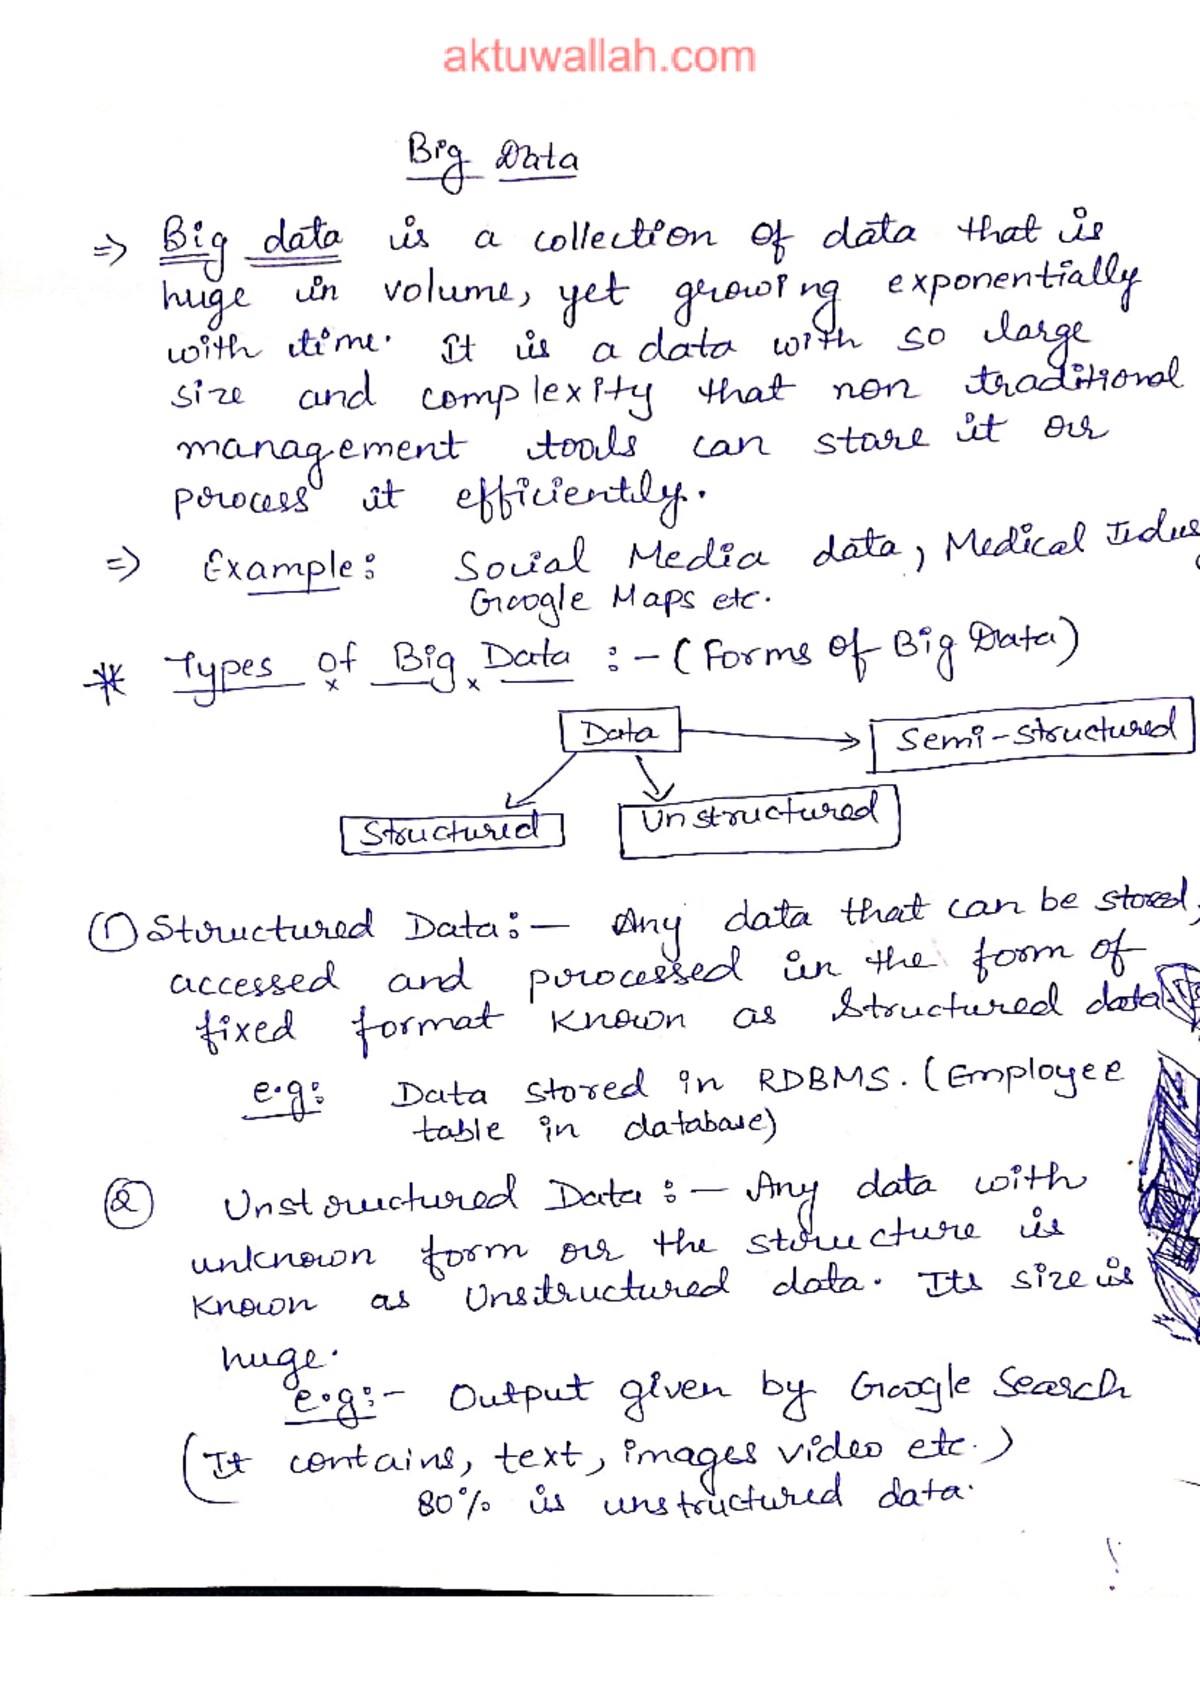 aktuwallah.com
Big Data
⇒ Big data is a collection of data that is
huge in volume, yet growing exponentially
with time. It is a data with so large
size and complexity that non traditional
management tools can store it or
process it efficiently.
⇒ Example: Social Media data, Medical Indus
Google Maps etc.
* Types of Big Data :- (Forms of Big Data)
Data
Semi-structured
Structured
Unstructured
① Structured Data:- Any data that can be stored,
accessed and processed in the form of
fixed format known as structured data.
e.g: Data stored in RDBMS. (Employee
table in database)
② Unstructured Data :- Any data with
unknown form or the structure is
known as Unstructured data. Its size is
huge.
e.g:- Output given by Google Search
(It contains, text, images video etc.)
80% is unstructured data.